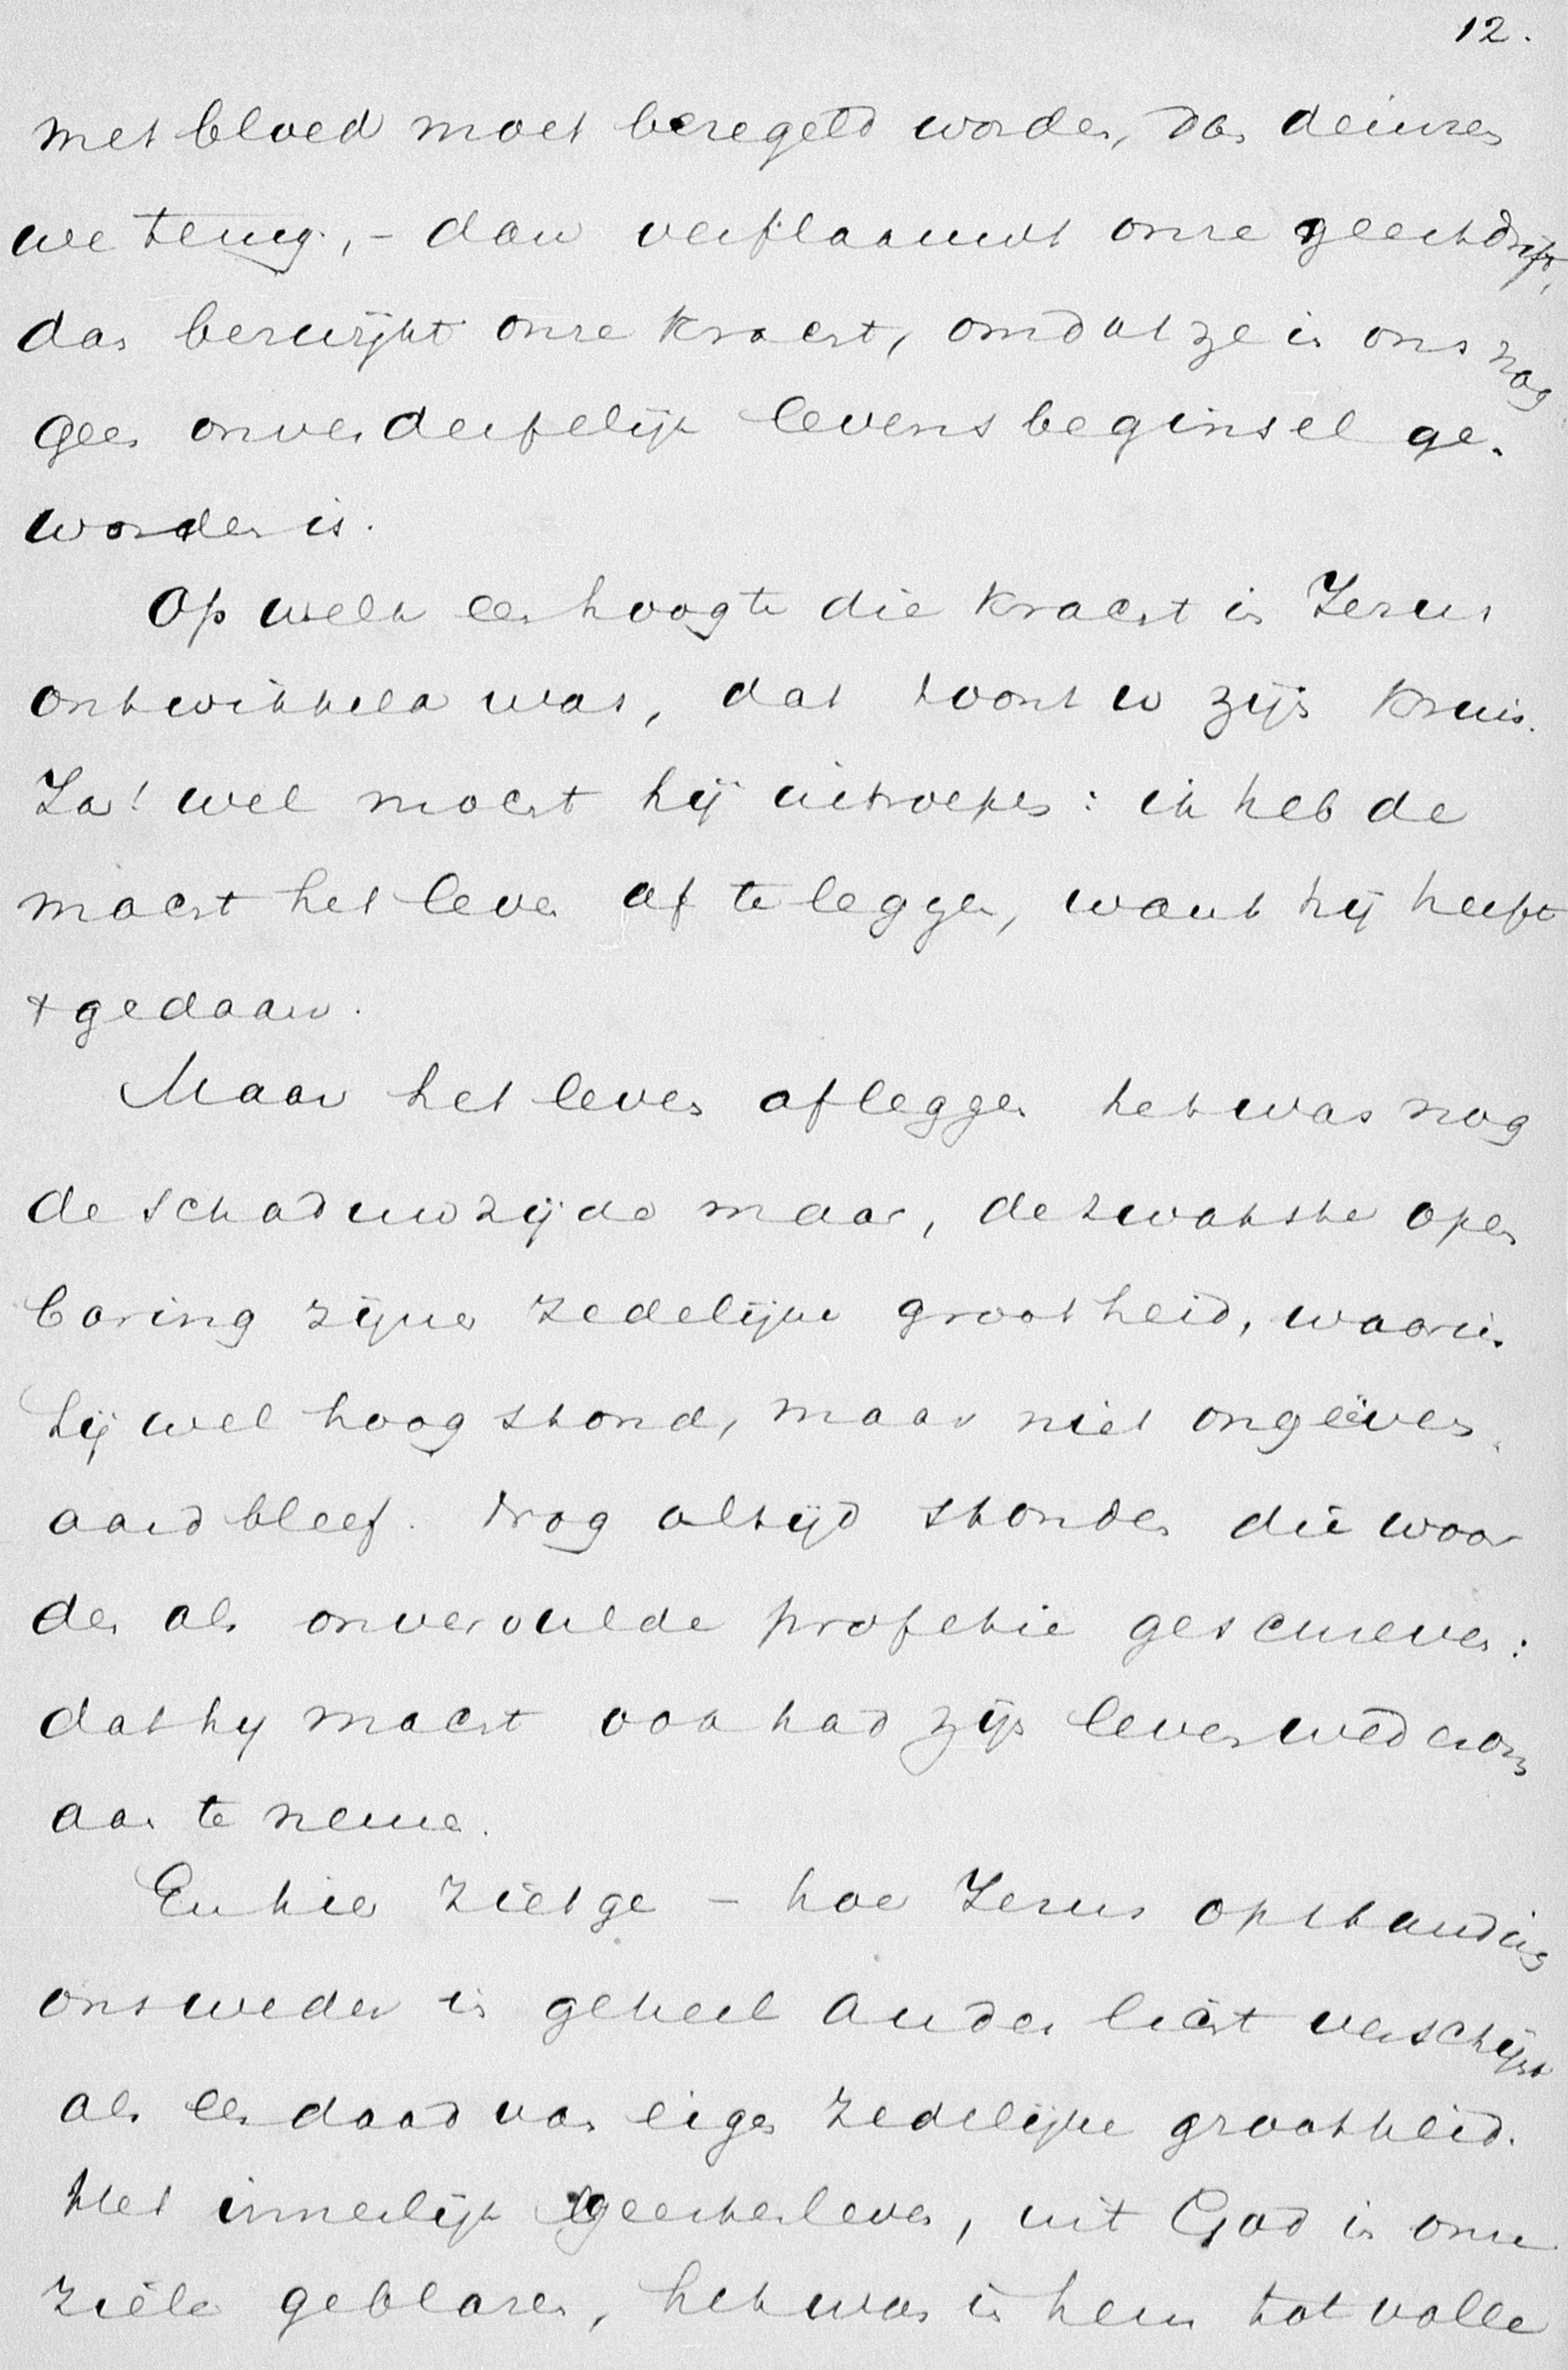 12.
met bloed moet bezegeld worden, dan deinzen
we terug, – dan verflaauwt onze geestdrift,
dan bezwijkt onze kracht, omdat ze in ons nog
geen onverderfelijk levensbeginsel ge-
worden is.
Op welk een hoogte die kracht in Jezus
ontwikkeld was, dat toont u zijn kruis.
Ja! wel mocht hij uitroepen: ik heb de
macht het leven af te leggen, want hij heeft
't gedaan.
Maar het leven afleggen het was nog
de schaduwzijde maar, de zwakste open
baring zijner zedelijke grootheid, waarin
hij wel hoog stond, maar niet ongeëven-
aard bleef. Nog altijd stonden die woor
den als onvervulde profetie geschreven:
dat hij macht ook had zijn leven wederom
aan te nemen.
En hier ziet ge – hoe Jezus opstanding
ons weder in geheel ander licht verschijnt
als een daad van eigen zedelijke grootheid.
Het innerlijk geestesleven, uit God in onze
ziele geblazen, het was in hem tot volle